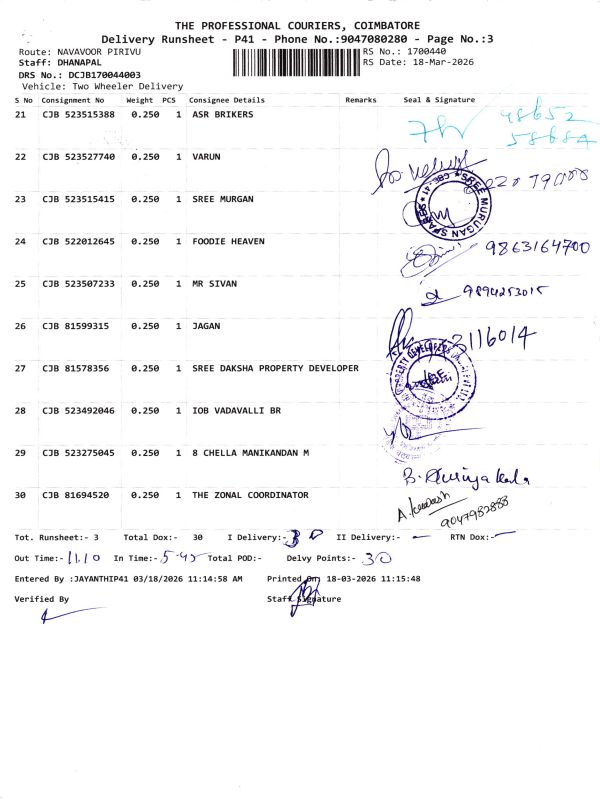 THE PROFESSIONAL COURIERS, COIMBATORE
Delivery Runsheet - P41 - Phone No.:9047080280 - Page No.:3
Route: NAVAVOOR PIRIVU RS No.: 1700440
Staff: DHANAPAL RS Date: 18-Mar-2026
DRS No.: DCJB170044003
Vehicle: Two Wheeler Delivery
S No Consignment No Weight PCS Consignee Details Remarks Seal & Signature
21 CJB 523515388 0.250 1 ASR BRIKERS 48652
58684
22 CJB 523527740 0.250 1 VARUN
23 CJB 523515415 0.250 1 SREE MURGAN SREE MURUGAN SPARES CBE-41
24 CJB 522012645 0.250 1 FOODIE HEAVEN 9863164700
25 CJB 523507233 0.250 1 MR SIVAN 9894253015
26 CJB 81599315 0.250 1 JAGAN 3116014
27 CJB 81578356 0.250 1 SREE DAKSHA PROPERTY DEVELOPER
28 CJB 523492046 0.250 1 IOB VADAVALLI BR
29 CJB 523275045 0.250 1 8 CHELLA MANIKANDAN M
30 CJB 81694520 0.250 1 THE ZONAL COORDINATOR 9047982888
Tot. Runsheet:- 3 Total Dox:- 30 I Delivery:- 30 II Delivery:- - RTN Dox:- -
Out Time:- 11.10 In Time:- 5.45 Total POD:- Delvy Points:- 30
Entered By :JAYANTHIP41 03/18/2026 11:14:58 AM Printed On: 18-03-2026 11:15:48
Verified By Staff Signature